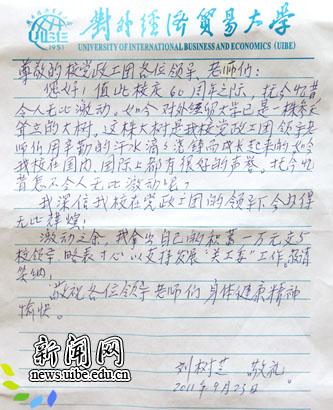 對外經濟貿易大學
UIBE
1951
UNIVERSITY OF INTERNATIONAL BUSINESS AND ECONOMICS (UIBE)
尊敬的校党政工团各位领导、老师们:
您好!值此校庆60周年之际,抚今忆昔
令人无比激动。如今对外经贸大学已是一株参天
耸立的大树,这株大树是我校党政工团领导老
师们用辛勤的汗水滴滴浇铸而成长起来的如今
我校在国内、国际上都有很好的声誉。抚今忆
昔怎不令人无比激动呢?
我深信我校在党政工团的领导下会取得
无比辉煌!
激动之余,我拿出自己的积蓄一万元交与
校领导,略表寸心以支持发展"关工委"工作。敬请
笑纳!
敬祝各位领导老师们身体健康精神
愉快。
刘树芝 敬礼
2011年9月23日.
新闻网
news.uibe.edu.cn